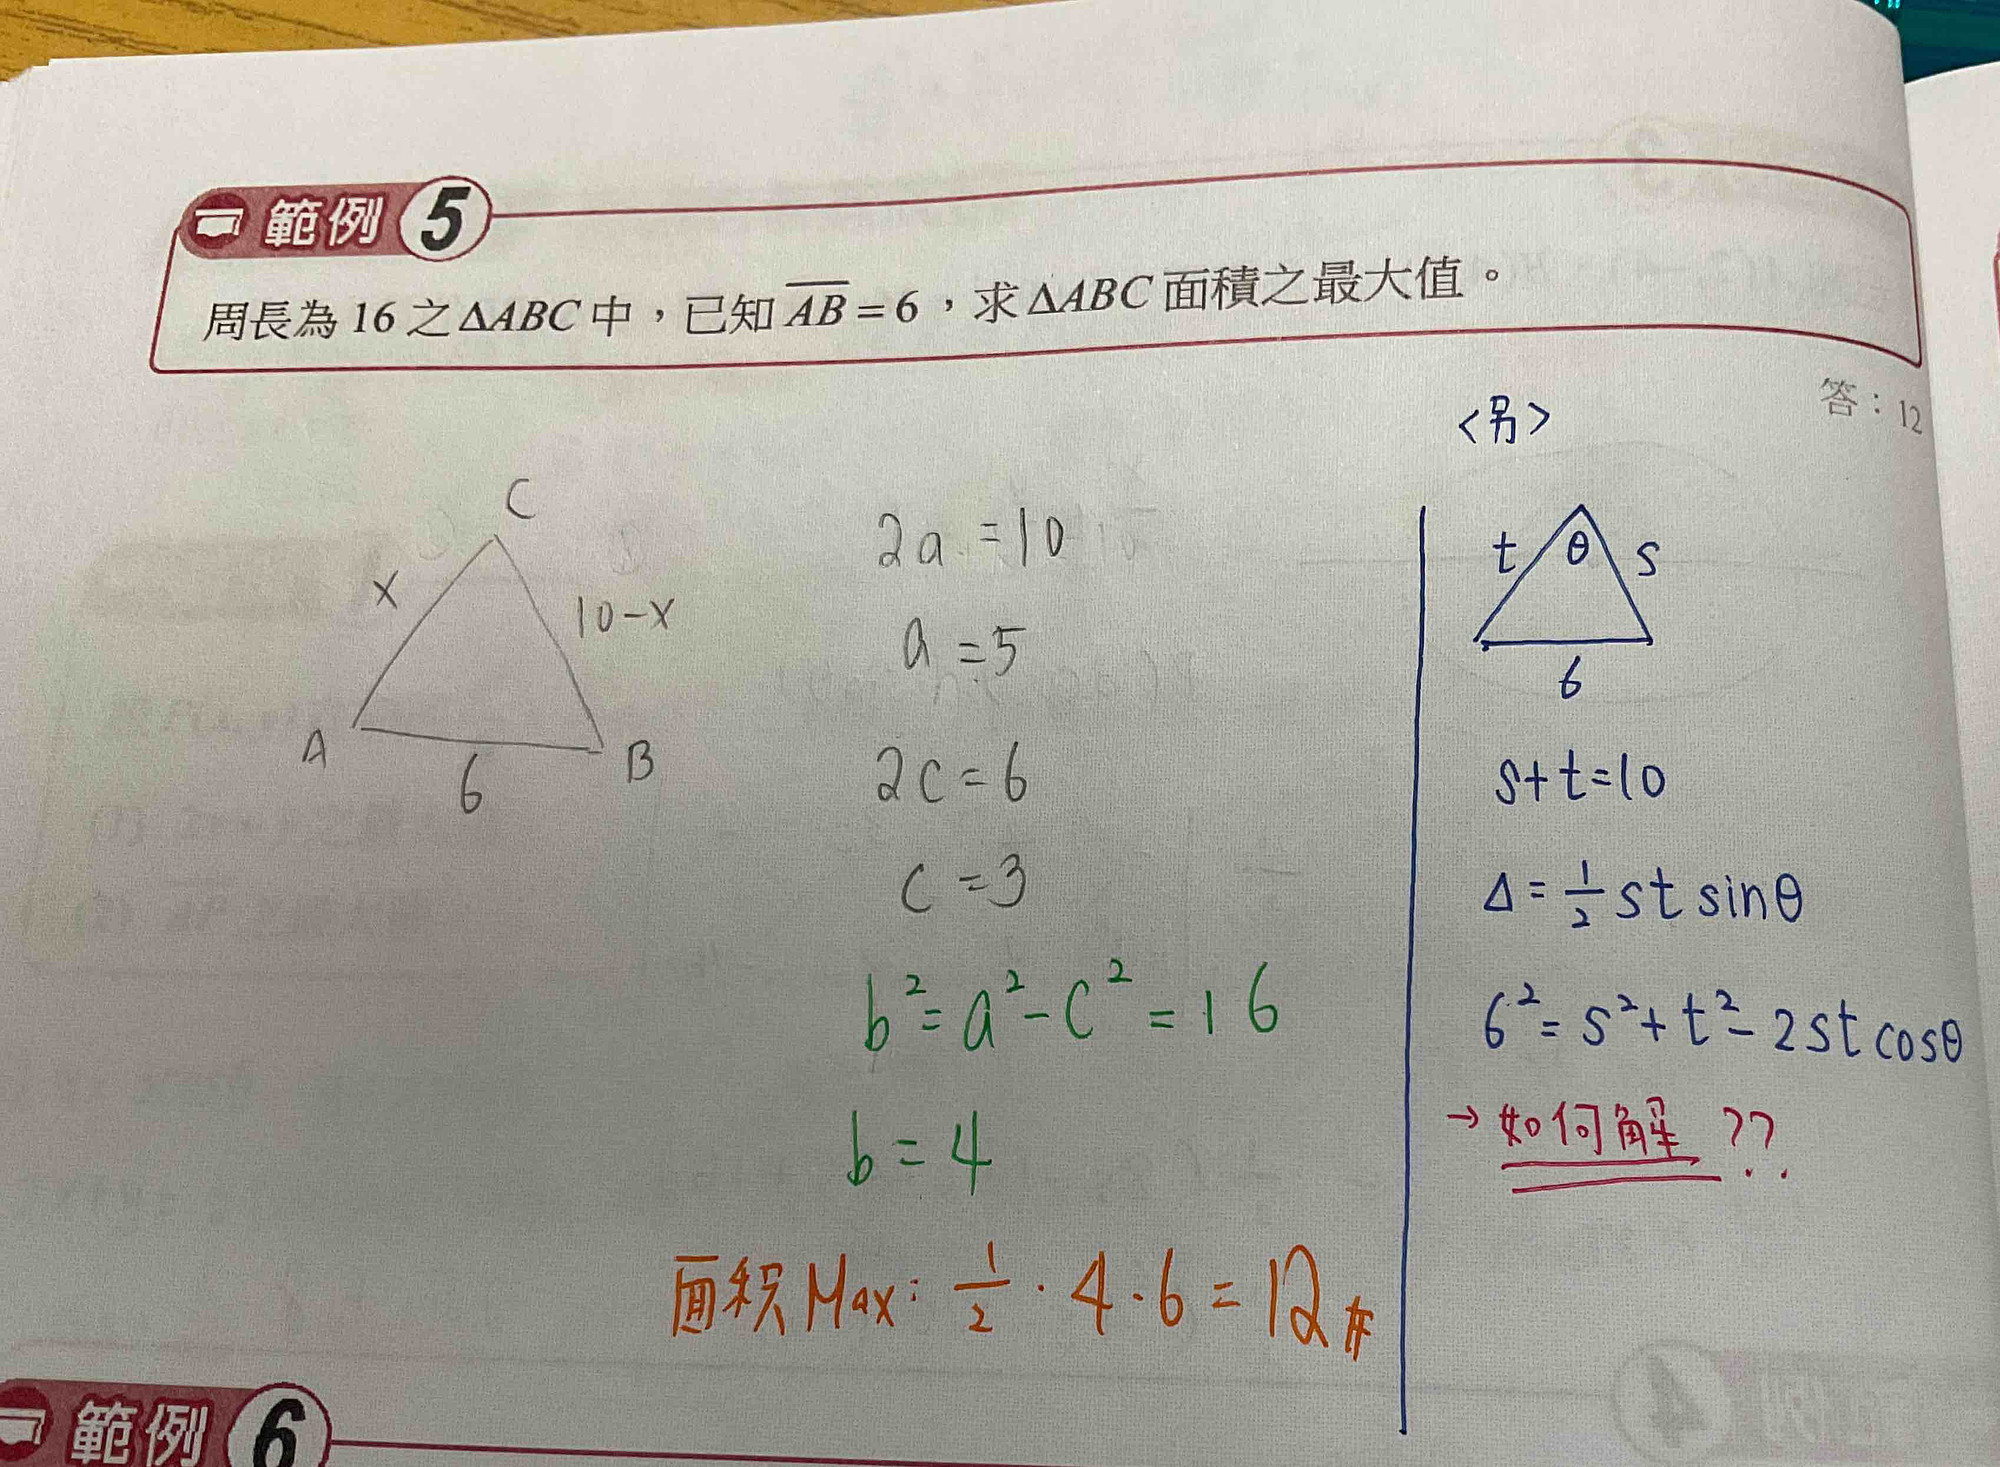 範例 5
周長為 16 之 ΔABC 中，已知 \overline{AB} = 6，求 ΔABC 面積之最大值。
答：12
C
x
10-x
A
B
6
2a = 10
a = 5
2c = 6
c = 3
b² = a² - c² = 16
b = 4
面积 Max: 1/2 · 4 · 6 = 12 #
<另>
t
θ
s
6
s+t=10
Δ = 1/2 st sinθ
6² = s² + t² - 2st cosθ
→ 如何解 ??
範例 6